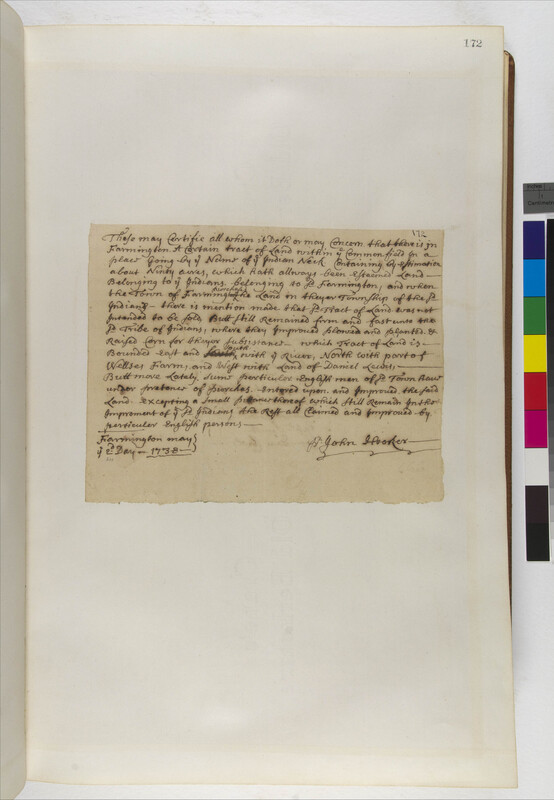 172
172
These may Certifie all whom it Doth or may Concern that there is in
Farmington A Certain tract of Land within ye Common field In a
place Going by ye Name of ye Indian Neck Containing by Estimation
about Ninty acres, which hath allways been Esteamed Land
Belonging to ye Indians belonging to sd Farmington, and when
purchased
the Town of Farmington the Land in theyer Township of the sd
Indians there is mention made that sd Tract of Land was not
Intended to be sold Butt still Remained firm and fast unto the
sd Tribe of Indians, where they Improved plowed and planted &
Raised Corn for theyer Subsistance which Tract of Land is
South
Bounded east and with ye River, North with part of
Wellses Farm, and West with Land of Daniel
Butt more Lately some particular English men of sd Town have
under pretence of purchas Entered upon and Improved the said
Land excepting a Small thereof which still Remain In the
Improment of ye sd Indians the Rest all Claimed and Improved by
perticuler English persons
Farmington may
ye 2d Day 1738
John Hooker